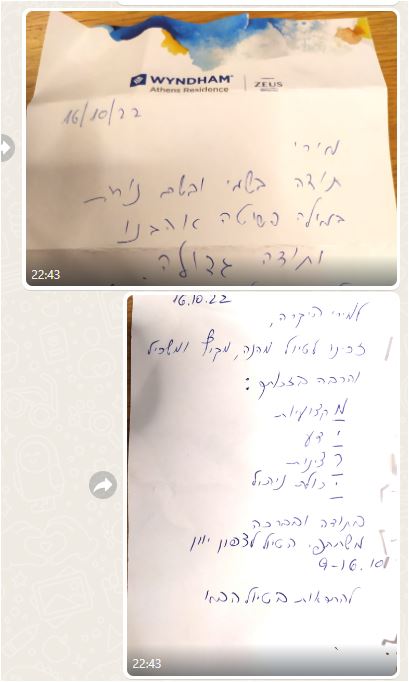 WYNDHAM
Athens Residence
ZEUS
16/10/22
מירי
תודה בשמי ובשם נורית
במילה פשוטה אהבנו
ותודה גדולה
22:43
16.10.22
למירי היקרה,
זכינו לטיול מהנה, מקיף ומשכיל
והרבה בזכותך:
מקצועיות
ידע
רצינות
יכולת ניהול
בתודה ובברכה
משתתפי הטיול לצפון יוון
9-16.10
להתראות בטיול הבא
22:43